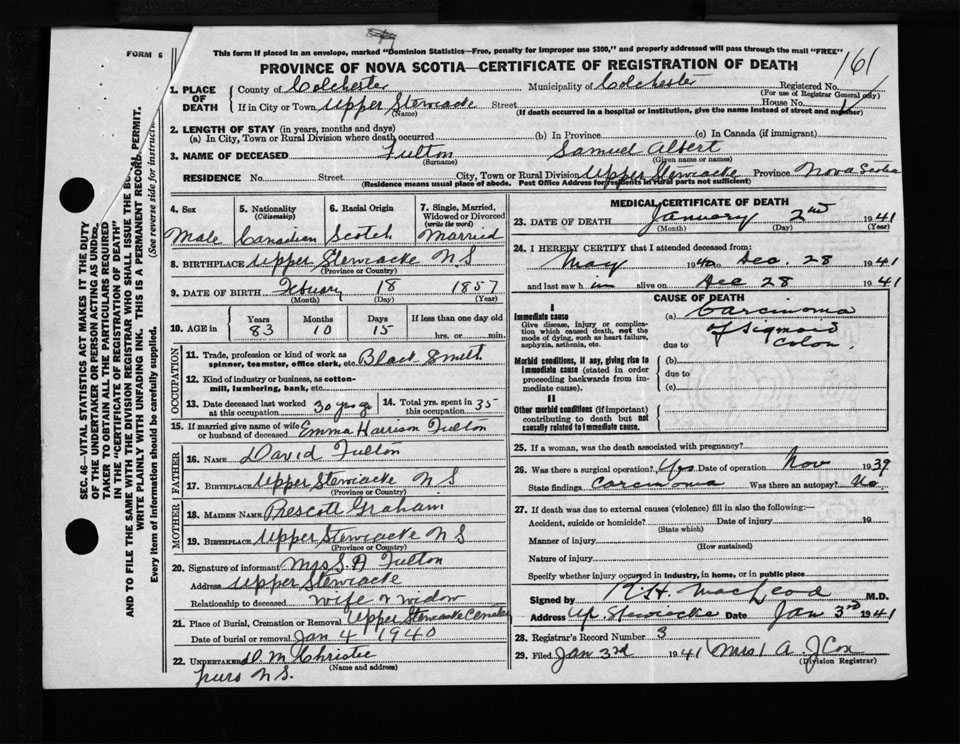 FORM 6
This form if placed in an envelope, marked "Dominion Statistics—Free, penalty for improper use $300," and properly addressed will pass through the mail "FREE"
PROVINCE OF NOVA SCOTIA—CERTIFICATE OF REGISTRATION OF DEATH
161
1. PLACE OF DEATH
County of Colchester Municipality of Colchester Registered No.
(For use of Registrar General only)
If in City or Town Upper Stewiacke Street House No.
(Name) (If death occurred in a hospital or institution, give the name instead of street and number)
2. LENGTH OF STAY (in years, months and days)
(a) In City, Town or Rural Division where death occurred (b) In Province (c) In Canada (if immigrant)
3. NAME OF DECEASED Fulton Samuel Albert
(Surname) (Given name or names)
RESIDENCE No. Street City, Town or Rural Division Upper Stewiacke Province Nova Scotia
(Residence means usual place of abode. Post Office Address for residents in rural parts not sufficient)
4. Sex Male
5. Nationality (Citizenship) Canadian
6. Racial Origin Scotch
7. Single, Married, Widowed or Divorced (write the word) Married
8. BIRTHPLACE Upper Stewiacke N S
(Province or Country)
9. DATE OF BIRTH Febuary 18 1857
(Month) (Day) (Year)
10. AGE in Years Months Days If less than one day old
83 10 15 hrs. or min.
OCCUPATION
11. Trade, profession or kind of work as spinner, teamster, office clerk, etc. Black Smith
12. Kind of industry or business, as cotton-mill, lumbering, bank, etc.
13. Date deceased last worked at this occupation 30 yrs ago
14. Total yrs. spent in this occupation 35
15. If married give name of wife or husband of deceased Emma Harrison Fulton
FATHER
16. NAME David Fulton
17. BIRTHPLACE Upper Stewiacke N S
(Province or Country)
MOTHER
18. MAIDEN NAME Prescott Graham
19. BIRTHPLACE Upper Stewiacke N S
(Province or Country)
20. Signature of informant Mrs S. A Fulton
Address Upper Stewiacke
Relationship to deceased wife or widow
21. Place of Burial, Cremation or Removal Upper Stewiacke
Date of burial or removal Jan 4 1940
22. UNDERTAKER D. M Christie
(Name and address)
Truro N S.
MEDICAL CERTIFICATE OF DEATH
23. DATE OF DEATH January 2nd 1941
(Month) (Day) (Year)
24. I HEREBY CERTIFY that I attended deceased from:
May 1940 to Dec. 28 1941
and last saw him alive on Dec 28 1941
CAUSE OF DEATH
I
Immediate cause
Give disease, injury or complication which caused death, not the mode of dying, such as heart failure, asphyxia, asthenia, etc.
(a) Carcinoma of Sigmoid Colon.
due to
Morbid conditions, if any, giving rise to immediate cause (stated in order proceeding backwards from immediate cause).
(b)
due to
(c)
II
Other morbid conditions (if important) contributing to death but not causally related to immediate cause.
25. If a woman, was the death associated with pregnancy?
26. Was there a surgical operation? Yes Date of operation Nov 1939
State findings Carcinoma Was there an autopsy? No
27. If death was due to external causes (violence) fill in also the following:—
Accident, suicide or homicide? Date of injury 19
(State which)
Manner of injury
(How sustained)
Nature of injury
Specify whether injury occurred in industry, in home, or in public place
Signed by R. H. MacLeod M.D.
Address Up. Stewiacke Date Jan 3rd 1941
28. Registrar's Record Number 3
29. Filed Jan 3rd 1941 Mrs A. J Cox
(Division Registrar)
SEC. 46—VITAL STATISTICS ACT MAKES IT THE DUTY
OF THE UNDERTAKER OR PERSON ACTING AS UNDERTAKER TO OBTAIN ALL THE PARTICULARS REQUIRED
IN THE "CERTIFICATE OF REGISTRATION OF DEATH"
AND TO FILE THE SAME WITH THE DIVISION REGISTRAR WHO SHALL ISSUE THE BURIAL PERMIT.
WRITE PLAINLY WITH UNFADING INK. THIS IS A PERMANENT RECORD.
Every item of information should be carefully supplied. (See reverse side for